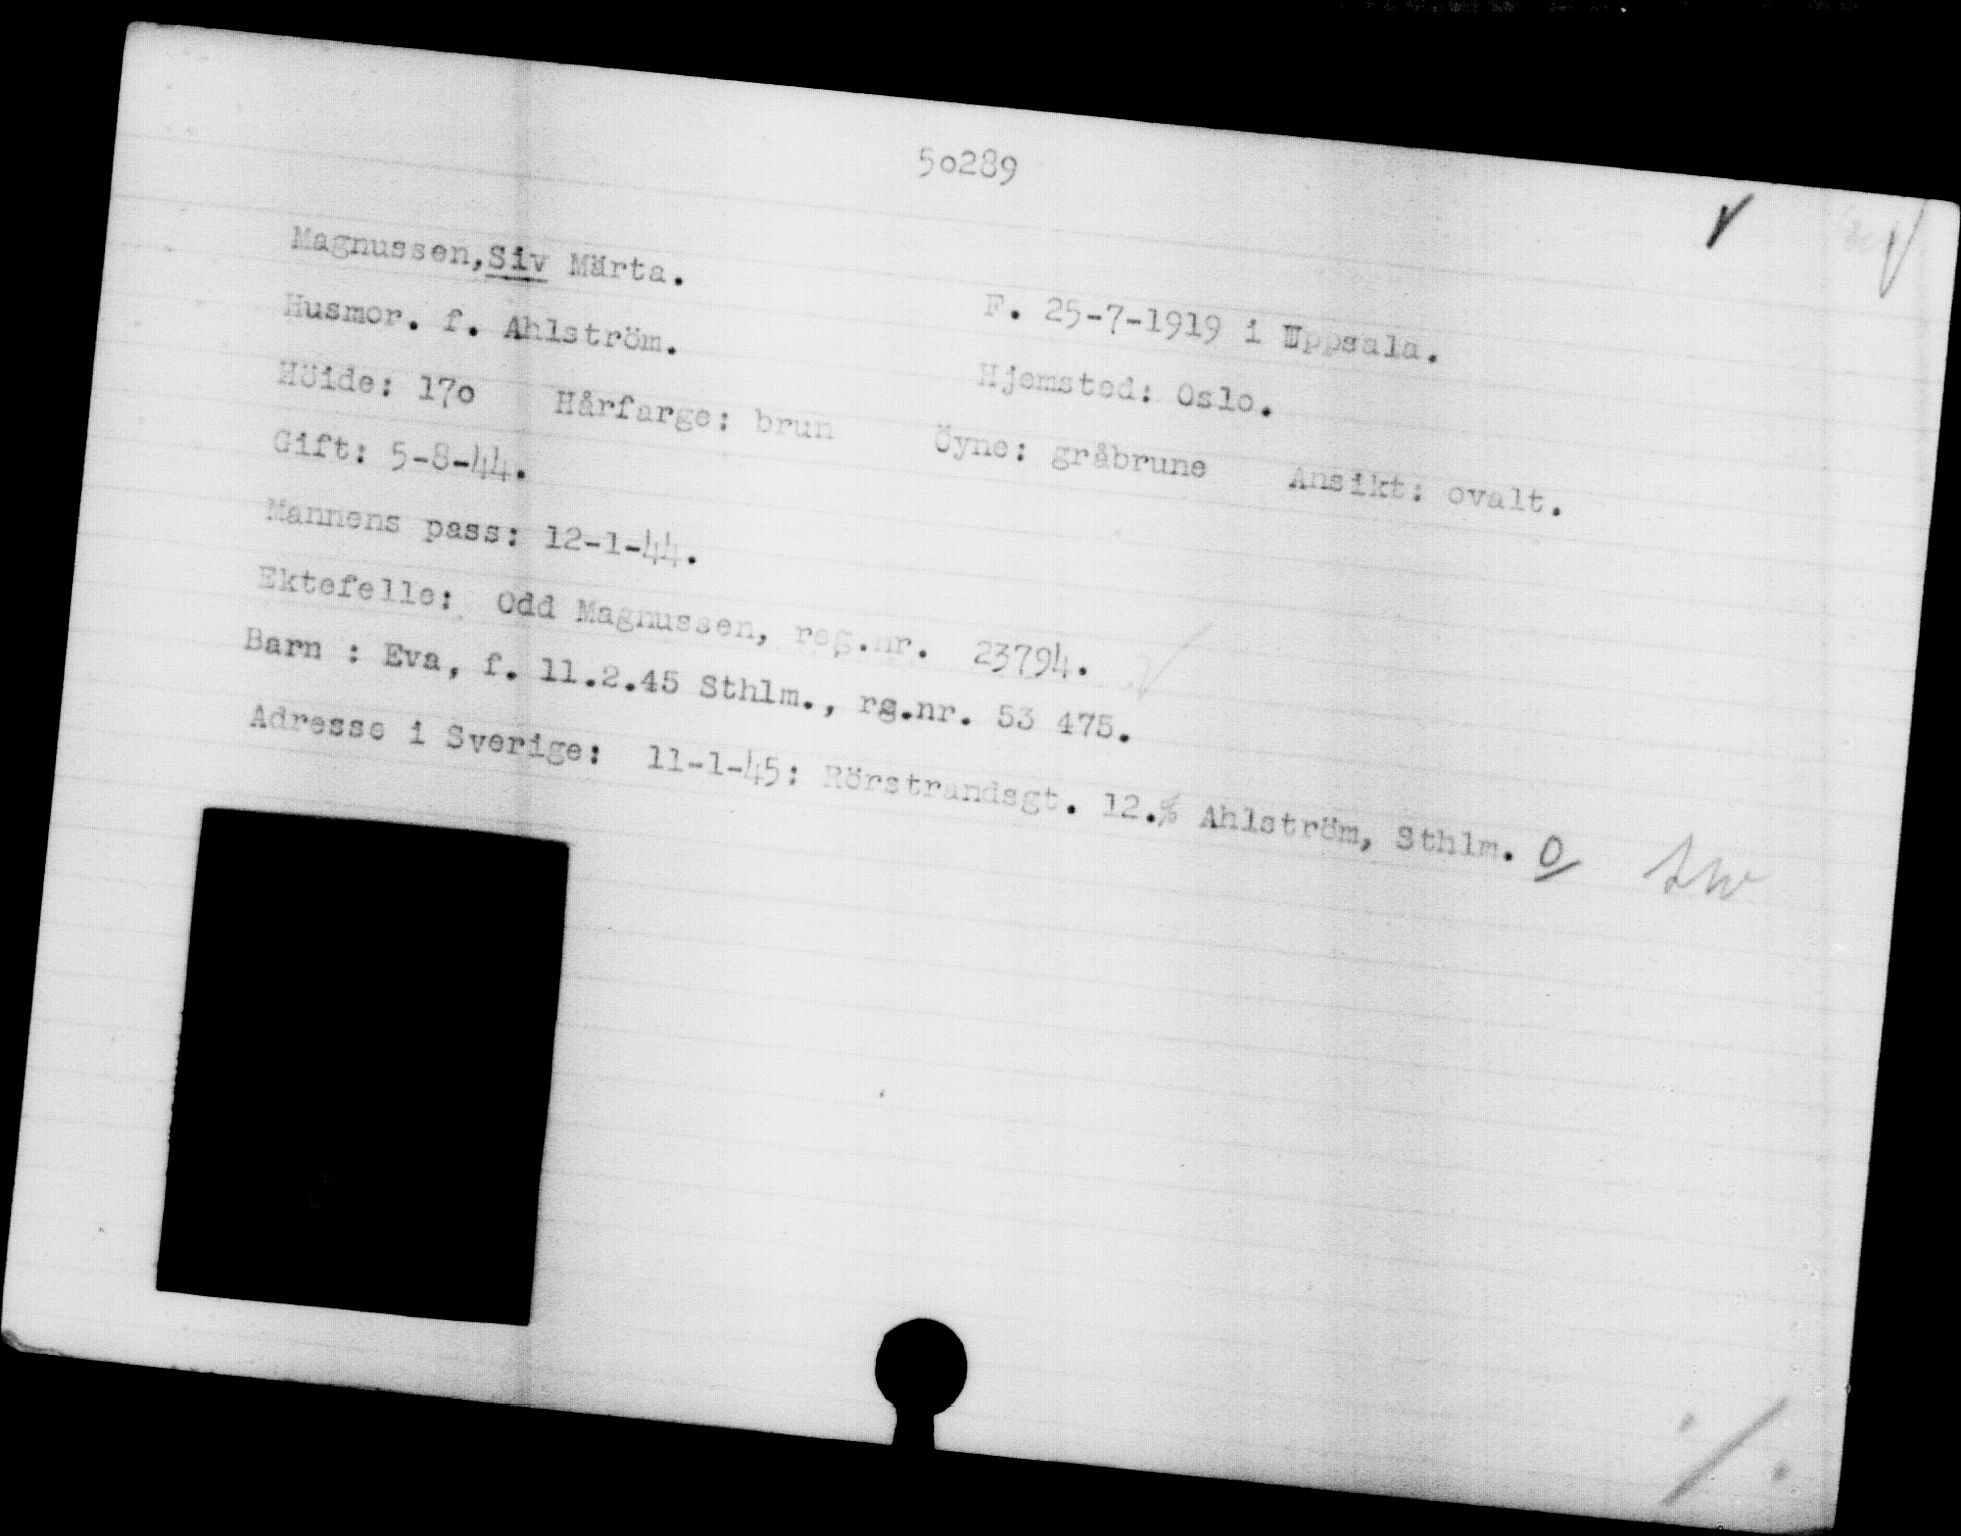 50289
Magnussen,Siv Märta.
F. 25-7-1919 i Uppsala.
Husmor. f. Ahlström.
Hjemsted: Oslo.
Höide: 170 Hårfarge: brun Öyne: gråbrune Ansikt: ovalt.
Gift: 5-8-44.
Mannens pass: 12-1-44.
Ektefelle: Odd Magnussen, reg.nr. 23794.
Barn : Eva, f. 11.2.45 Sthlm., rg.nr. 53 475.
Adresse i Sverige: 11-1-45: Rörstrandsgt. 12.% Ahlström, Sthlm. O